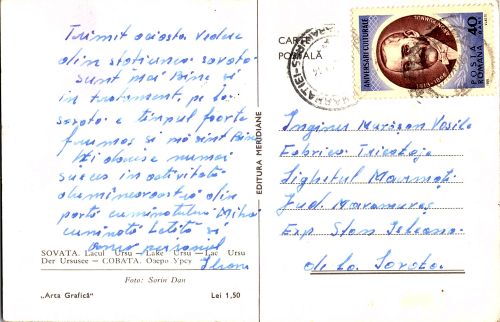 Trimit aciasta vedere
din stațiunea sovata
sunt mai bine și
in tratament, pe la
sovata e timpul foarte
frumos și mă simt bine
Iți doresc numai
succes in activitatea
dumineavoastră din
partea cuminatului Miha
cuminata
personal
SOVATA. Lacul Ursu — Lake Ursu — Lac Ursu
Der Ursusee — СОВАТА. Озеро Урсу
Foto: Sorin Dan
„Arta Grafică" Lei 1,50
EDITURA MERIDIANE
CARTE
POȘTALĂ
ANIVERSARI CULTURALE
POSTA
ROMANA
40
BANI
Inginer Mureșan Vasile
Fabrica Tricotaje
Sighetul Marmați
Jud Maramureș
Exp Stan
de la Sovata